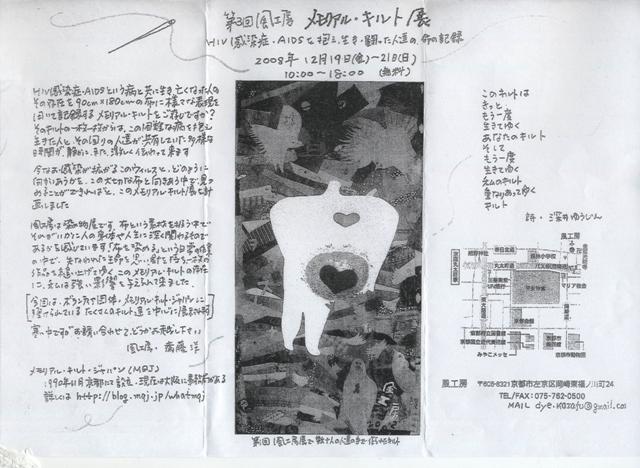 第3回 風工房 メモリアル・キルト展
HIV感染症・AIDSと抱え、生き・闘った人達の、命の記録
2008年 12月19日(金)〜21日(日)
10:00〜18:00 (無料)
HIV感染症・AIDSという病と共に生き、亡くなった人の
その存在を90cm×180cmの布に様々な表現を
用いて記録するメモリアル・キルトをご存知ですか?
そのキルトの一枚一枚からは、この困難な病を抱え
生きた人と、その回りの人達が共有していた多様な
時間が、静かに、また、激しく伝わって来ます
今なお感染が拡がるこのウィルスと、どのように
向かいあうかを、この大切な布と向きあう中で、見つ
めることができればと、このメモリアル・キルト展を計
画しました
風工房は染物屋です。布という素材を扱う中で
それがいかに人の身体や人生に深く関わるものであ
るかを感じています。「布を染める」という日常の
中で、失なわれた生命を思い
このメモリアル・キルトの存在
に、えらは強い影響を与えられて来ました。
今回は、ボランティア団体・メモリアル・キルト・ジャパンに
寄せられているたくさんのキルト達を中心に展示
寒い中ですが お誘い合わせて、どうかお越し下さい
風工房・斎藤 洋
メモリアル・キルト・ジャパン(MQJ)
1990年11月京都にて設立、現在は大阪に事務局がある
詳しくは http://blog.mqj.jp/whatmqj
第1回 風工房展で 数十人の人達の手で作られたキルト
このキルトは
きっと
もう一度
生きてゆく
あなたのキルト
そして
もう一度
生きてゆく
えムのキルト
重なりあってゆく
キルト
詩・深井ゆうじん
風工房
熊野神社
春日北通
丸太町通
平安神宮
岡崎通
東大路通
京都会館
京都府立図書館
京都国立近代美術館
みやこメッセ
京都市動物園
風工房
〒606-8321 京都市左京区岡崎東福ノ川町24
TEL/FAX:075-762-0500
MAIL dye.kazafu@gmail.com